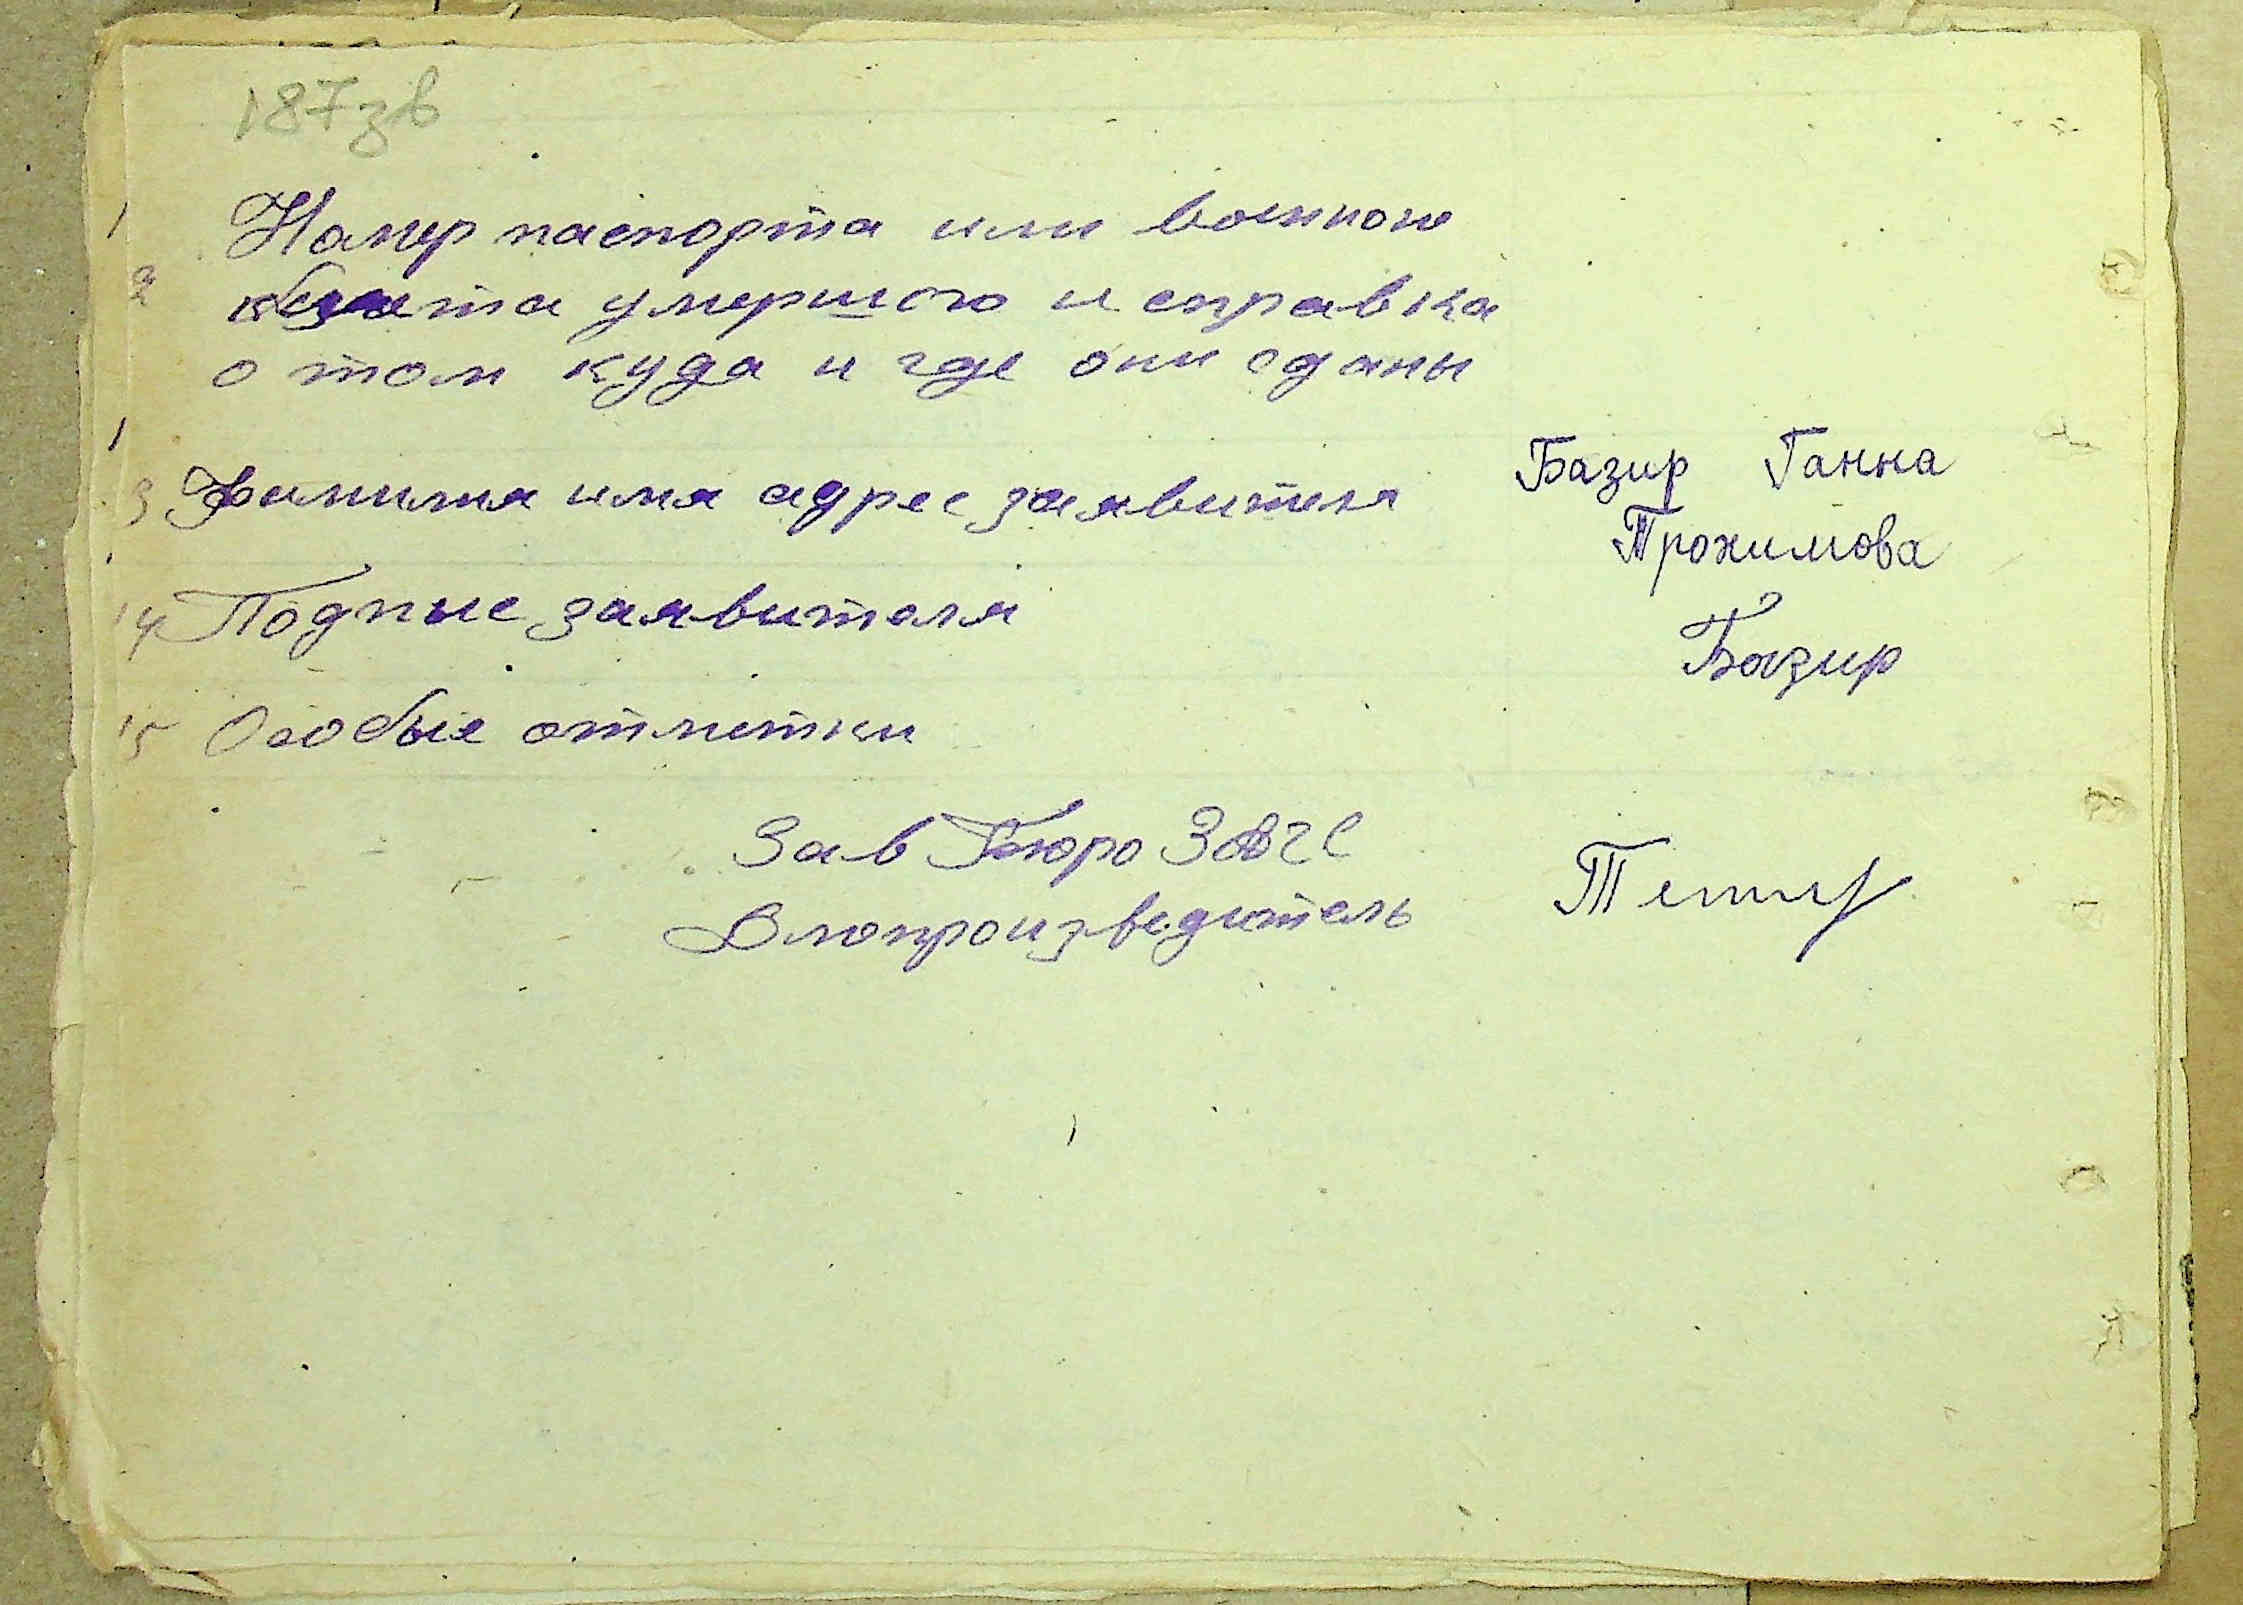 187 зв
12 Номер паспорта или военного
билета умершого и справка
о том куда и где они сданы
13 Фамилия имя адрес заявителя Базир Ганна
Трохимова
14 Подпис заявителя Базир
15 Особые отметки
Зав Бюро ЗАГС
Влопроизведитель